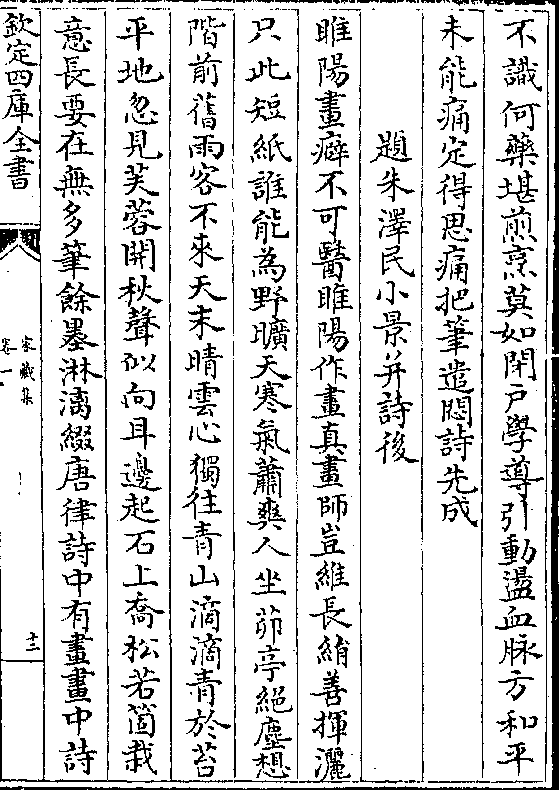 不識何藥堪煎烹莫如閉戸學導引動盪血脉方和平
未能痛定得思痛把筆遣悶詩先成
題朱澤民小景并詩後
睢陽畫癖不可醫睢陽作畫真畫師豈維長綃善揮灑
只此短紙誰能為野曠天寒氣蕭爽人坐茆亭絕塵想
階前舊雨客不來天末晴雲心獨往青山滴滴青於苔
平地忽見芙蓉開秋聲似向耳邊起石上喬松若箇栽
意長要在無多筆餘墨淋漓綴唐律詩中有畫畫中詩
欽定四庫全書
家藏集
卷一
十二